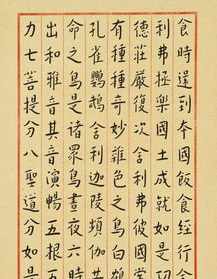 食時還到本國飯食經行舍
利弗極樂國土成就如是功
德莊嚴復次舍利弗彼國常
有種種奇妙雜色之鳥白鵠
孔雀鸚鵡舍利迦陵頻伽共
命之鳥是諸眾鳥晝夜六時
出和雅音其音演暢五根五
力七菩提分八聖道分如是